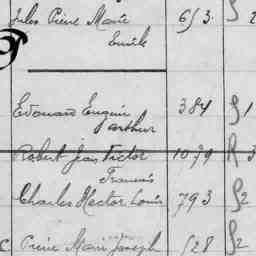 Jules Pierre Marie 653 2
Emile
Edouard Eugène 384 1
Arthur
Robert Jean Victor 1079 R 3
Francois
Charles Hector Louis 793 2
C Pierre Marie Joseph 528 2